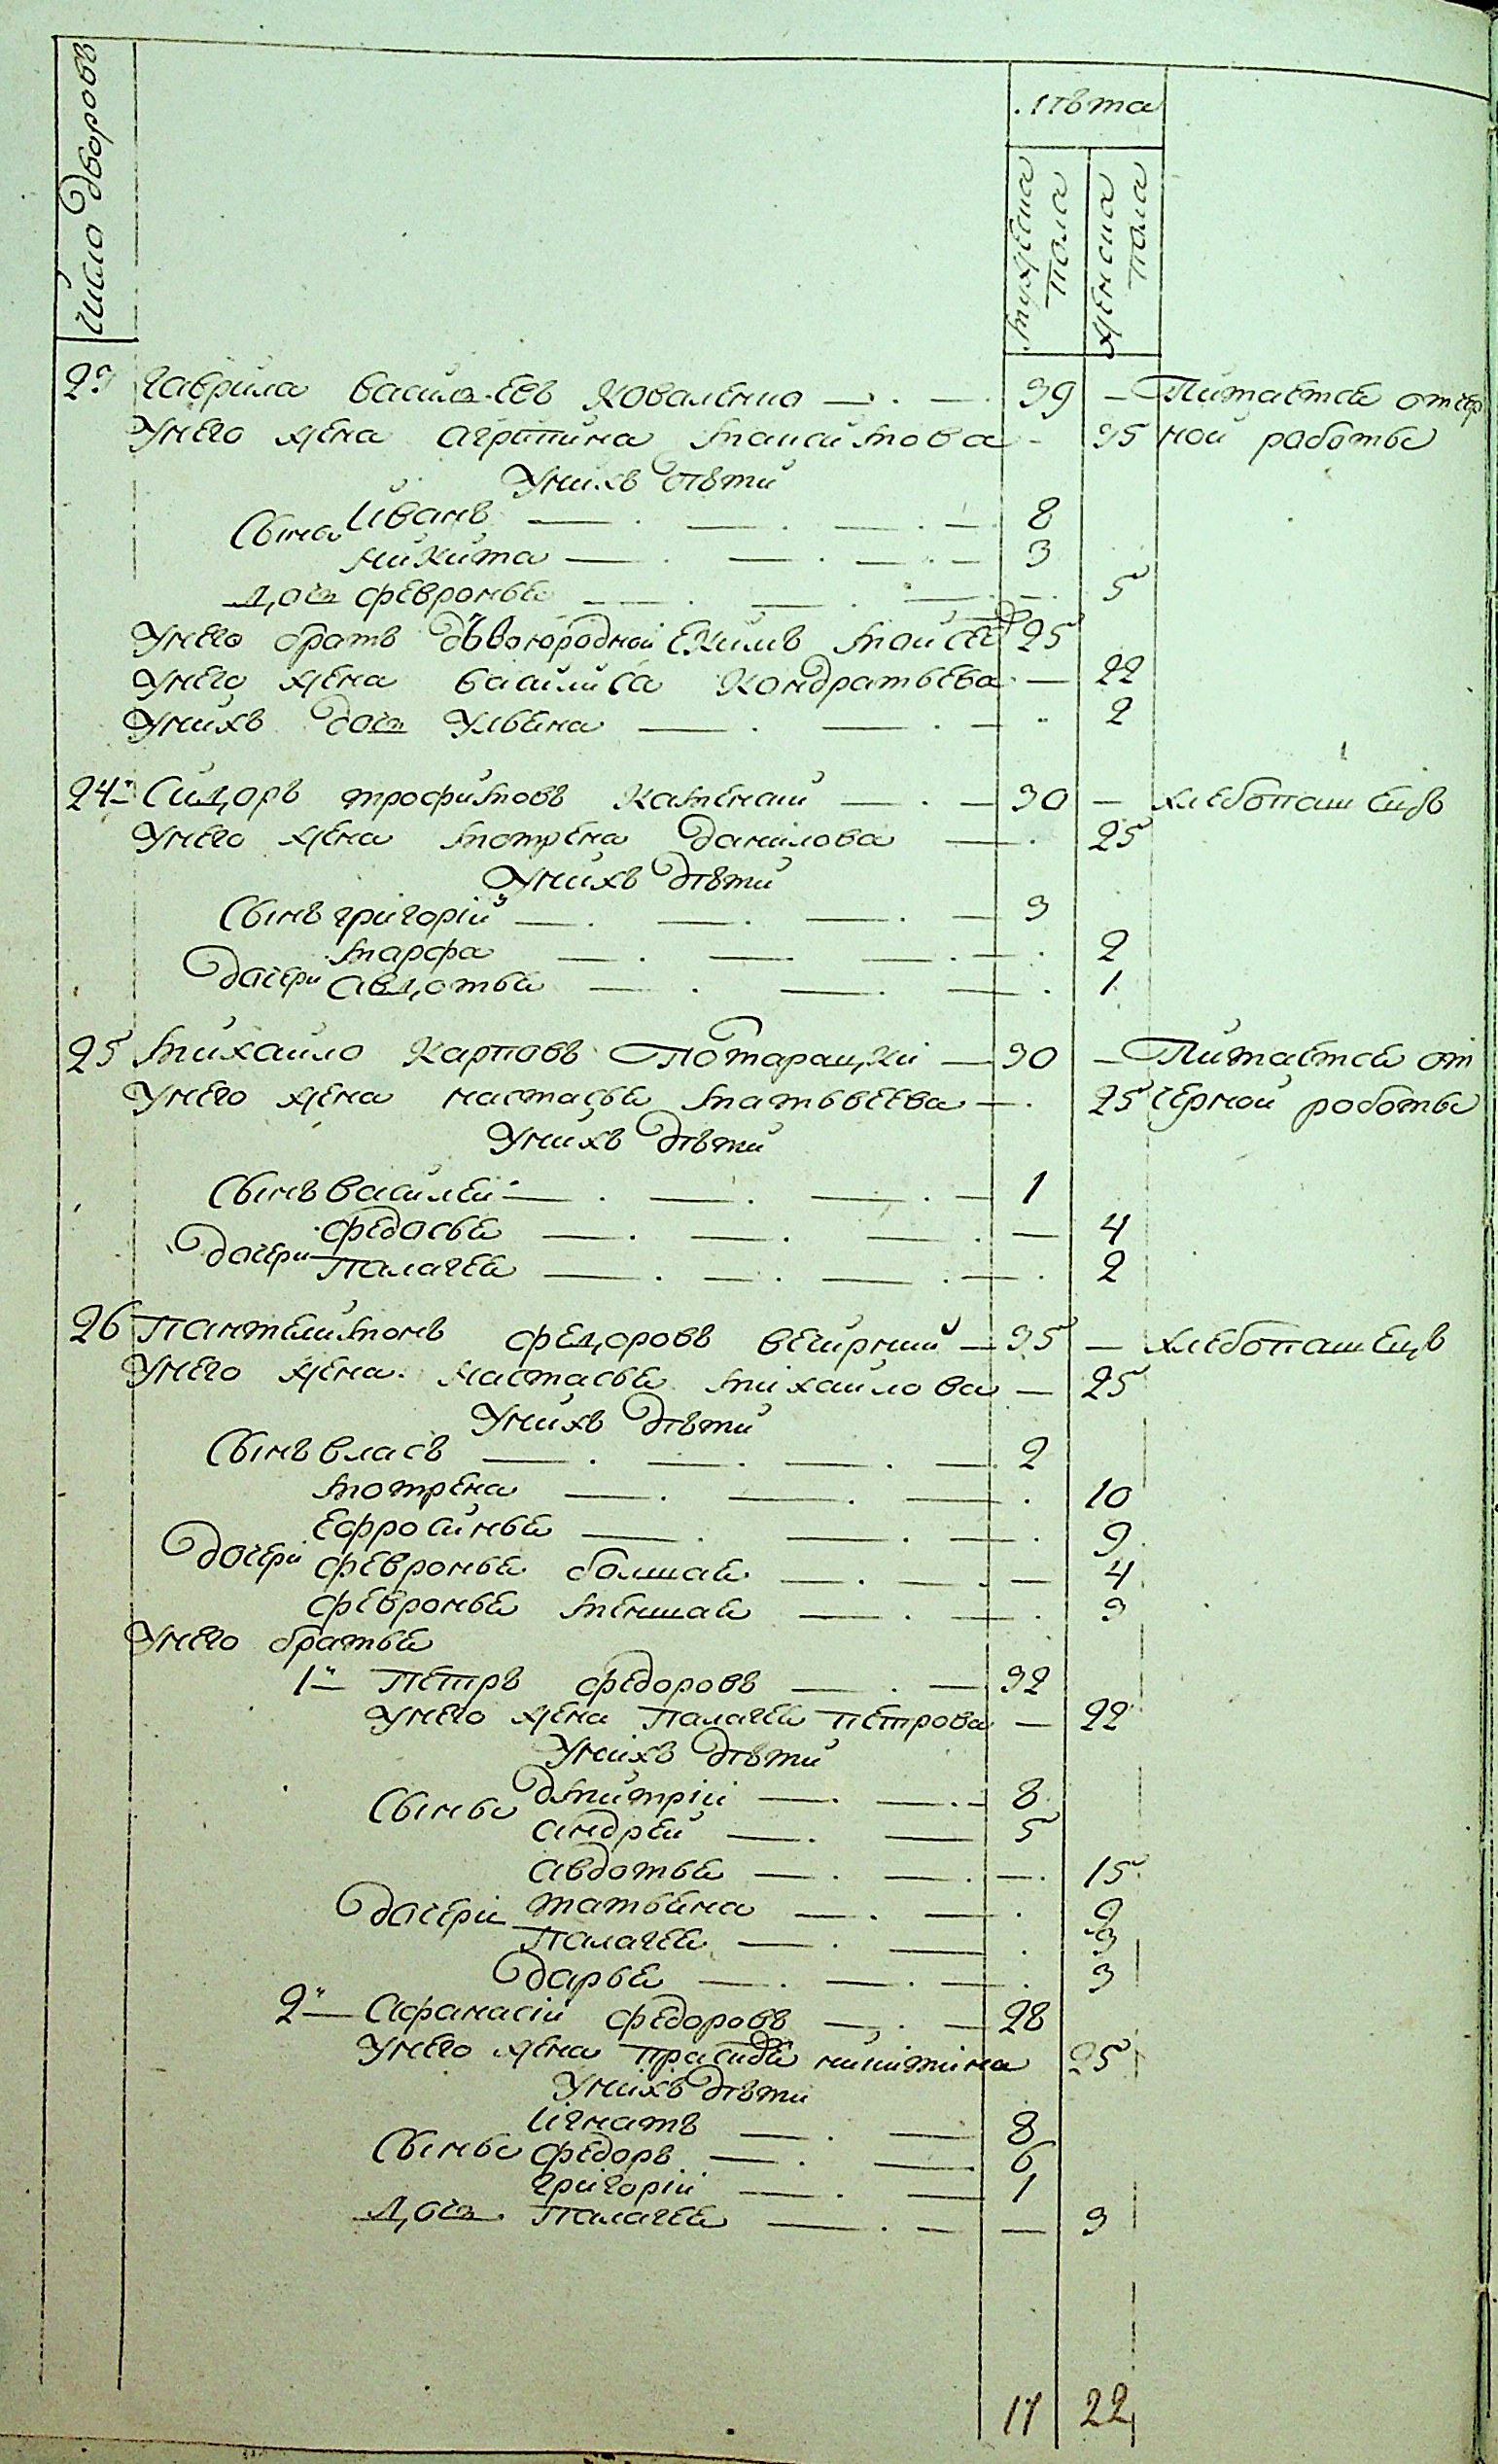 Число дворовъ
лѣта
мужеска пола
женска пола
23 Гаврила Васильевъ Коваленко 39 — Питаетсе отчер
Унего жена Агрипина Максимова - 35 ной работы
Унихъ дѣти
Сына Иванъ 8
Никита 3
Дочь Февронье 5
Унего братъ двоюродной Екимъ Моисеев 25
Унего жена Василиса Кондратьева — 22
Унихъ дочь Ульена 2
24 Сидоръ Трофимовъ 30 — хлебопашецъ
Унего жена Мотрена Данилова 25
Унихъ дѣти
Сынъ Григорій 3
Марфа 2
Дочери Авдотье 1
25 Михаило Карповъ Потарацкі — 30 — Питаетсе от
Унего жена Настасье Матьвеева — 25 черной роботы
Унихъ дѣти
Сынъ Василей 1
Федосье 4
Дочери Палагее 2
26 Пантелимонъ Федоровъ Вечирний — 35 — хлебопашецъ
Унего жена Настасье Михаилова — 25
Унихъ дѣти
Сынъ Власъ 2
Мотрена 10
Ефросинье 9
Дочери Февронье болшае 4
Февронье меншае 3
Унего братье
1й Петръ Федоровъ 32
Унего жена Палагее Петрова — 22
Унихъ дѣти
Сыны Дмитрій 8
Андрей 5
Авдотье 15
Дочері Татьена 9
Палагее 3
Дарье 3
2й Афанасій Федоровъ 28
Унего жена Никитина 25
Унихъ дѣти
Игнатъ 8
Сыны Федоръ 6
Григорій 1
Дочь Палагее 3
17 22